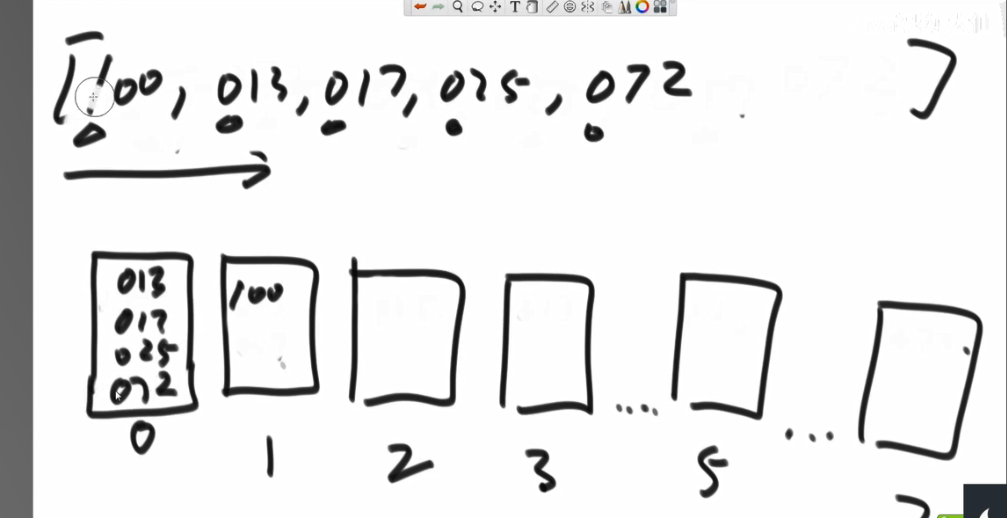 [100, 013, 017, 025, 072 ]
013
017
025
072
100
0 1 2 3 .... 5 ...